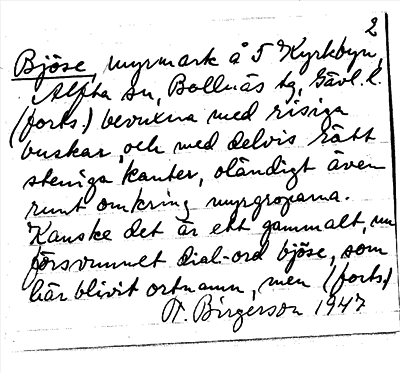 2
Bjöse, myrmark å 5 Kyrkbyn,
Alfta sn, Bollnäs tg, Gävl. l.
(forts.) bevuxna med risiga
buskar, och med delvis rätt
steniga kanter, oländigt även
runt omkring myrgroparna.
Kanske det är ett gammalt, nu
försvunnet dial-ord bjöse, som
här blivit ortnamn, men (forts.)
H. Birgerson 1947